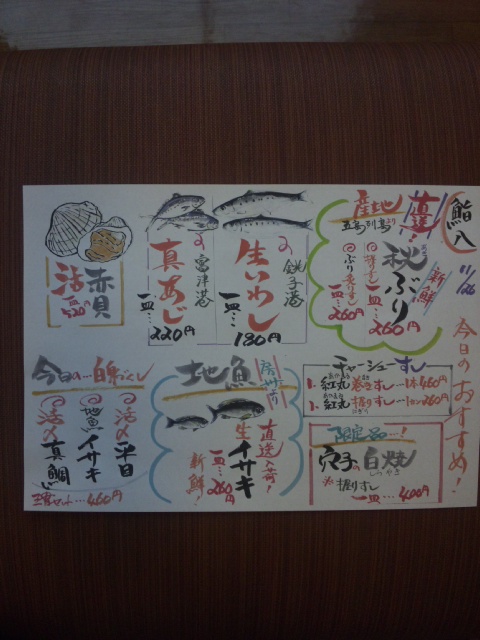 鮨八
11/26
今日のおすすめ!
産地直送!
五島列島より
秋ぶり
新鮮
一皿…260円
一皿…260円
生いわし
銚子港
一皿…180円
真あじ
富津港
一皿…220円
赤貝
活
チャーシューすし
1. 紅丸巻きすし…1本460円
1. 紅丸握りすし…1カン260円
限定品…!
穴子の白焼
しらやき
握りすし
一皿…400円
地魚
直送入荷!
生イサキ
一皿…260円
新鮮
今日の白身づくし
活〆平目
地魚イサキ
活〆真鯛
三貫セット…460円